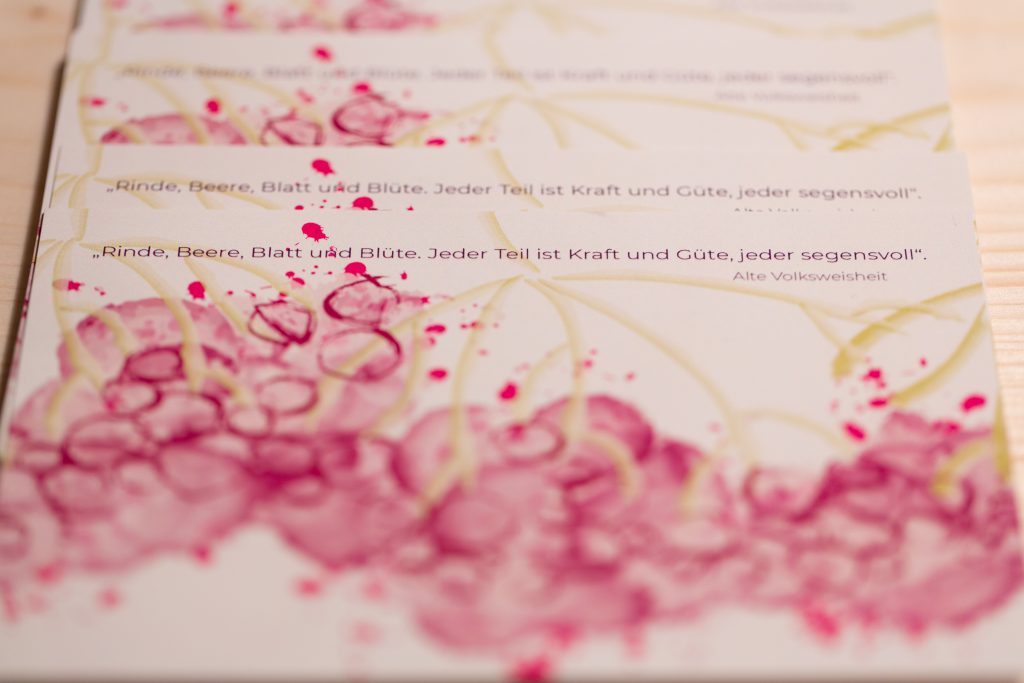 „Rinde, Beere, Blatt und Blüte. Jeder Teil ist Kraft und Güte, jeder segensvoll“.
Alte Volksweisheit
„Rinde, Beere, Blatt und Blüte. Jeder Teil ist Kraft und Güte, jeder segensvoll“.
Alte Volksweisheit
„Rinde, Beere, Blatt und Blüte. Jeder Teil ist Kraft und Güte, jeder segensvoll“.
Alte Volksweisheit